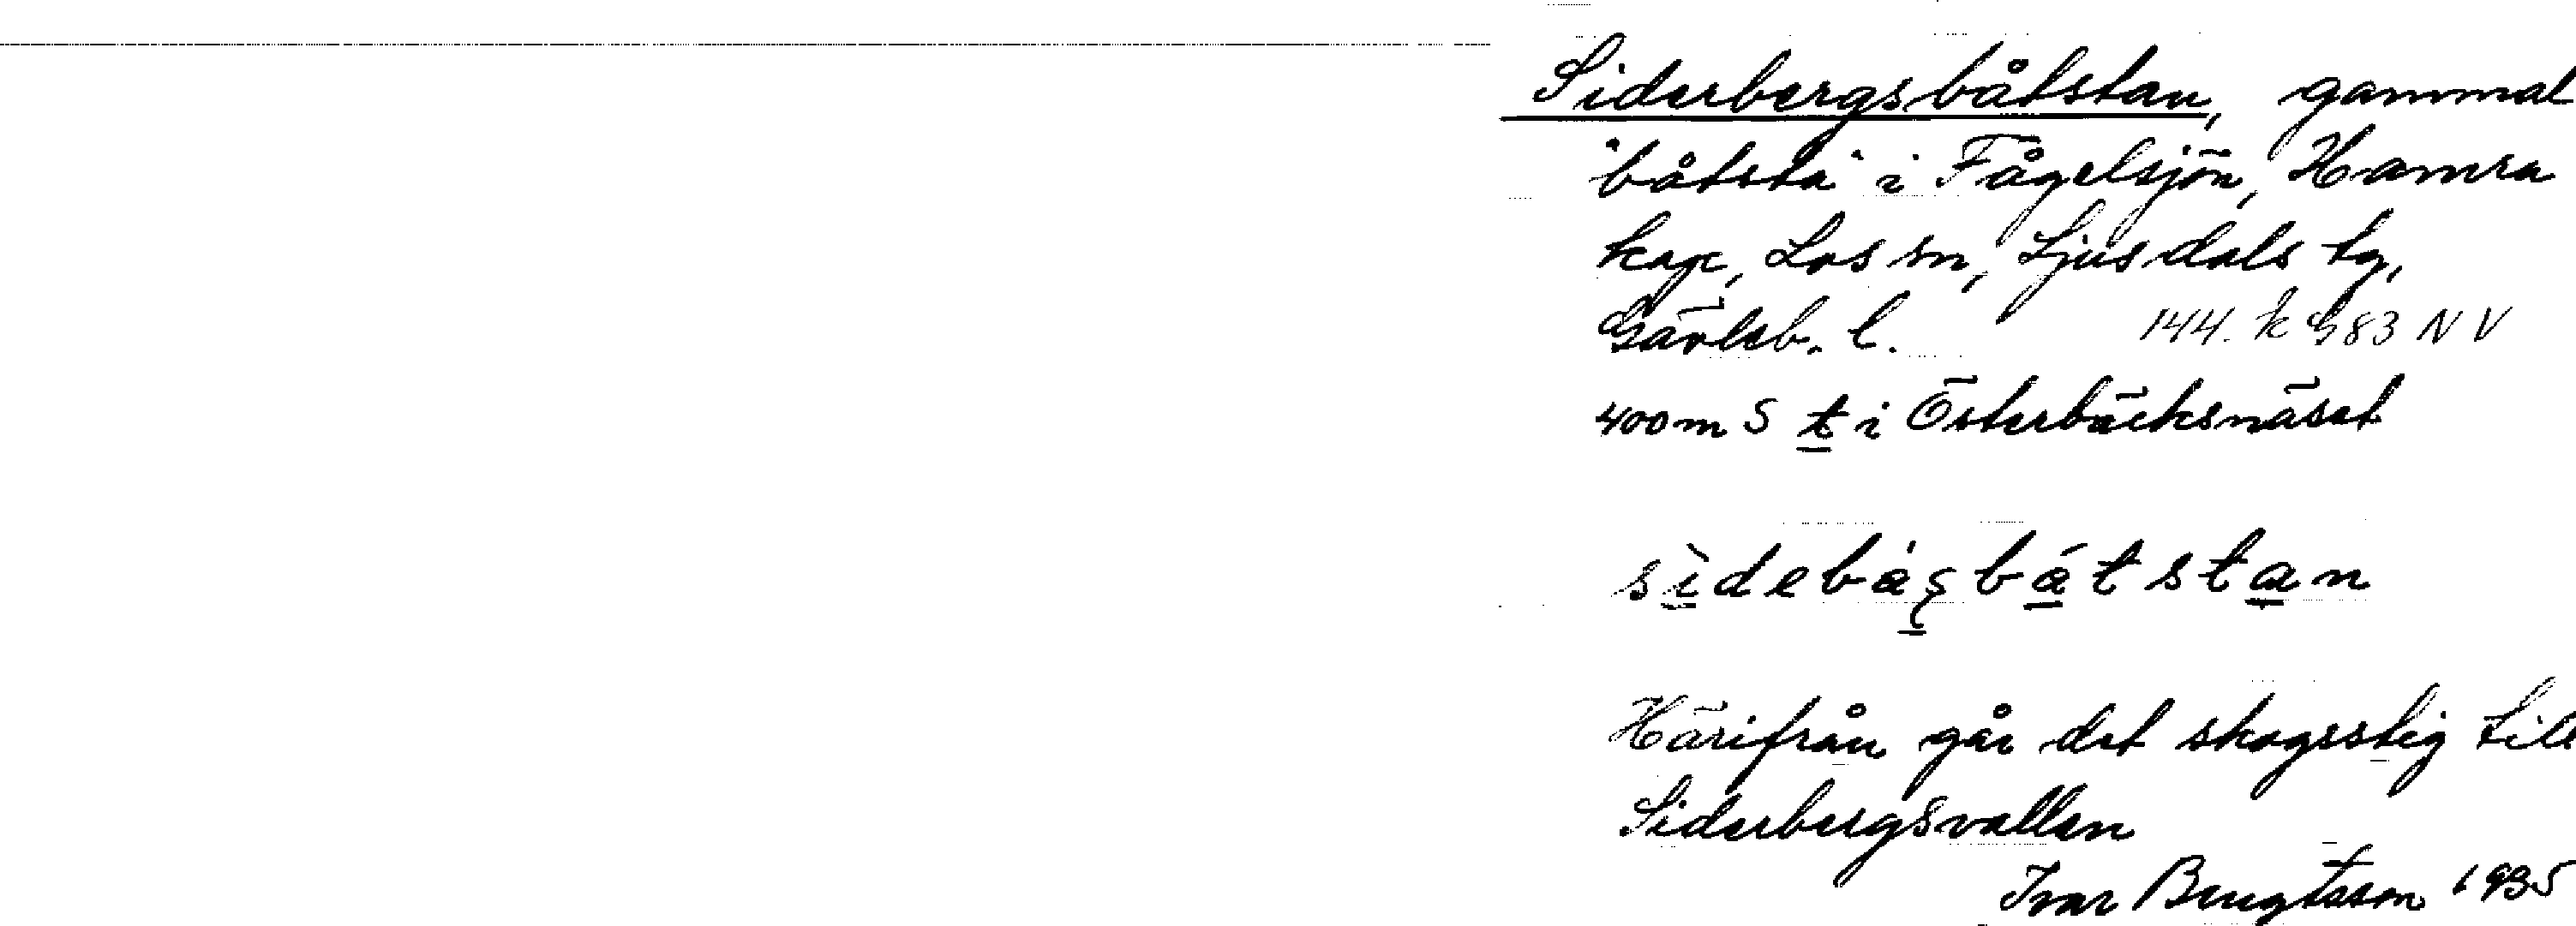 Siderbergsbåtstan, gammal
"båtsta" i Fågelsjön, Hamra
kap, Los sn, Ljusdals tg,
Gävleb. l. 144. k 983 NV
400 m S t i Österbäcksnäset
sìdebá̀ȿbátstan
Härifrån går det skogsstig till
Siderbergsvallen
Ivar Bengtsson 1935